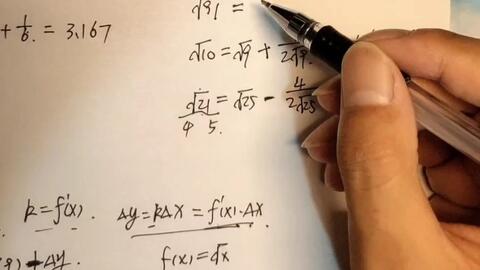 √91 =
+ 1/6. = 3.167
√10 = √9 + /2√9.
√21 = √25 - 4/2√25
4 5.
k = f'(x). Δy = kΔx = f'(x)·Δx.
+Δy f(x) = √x